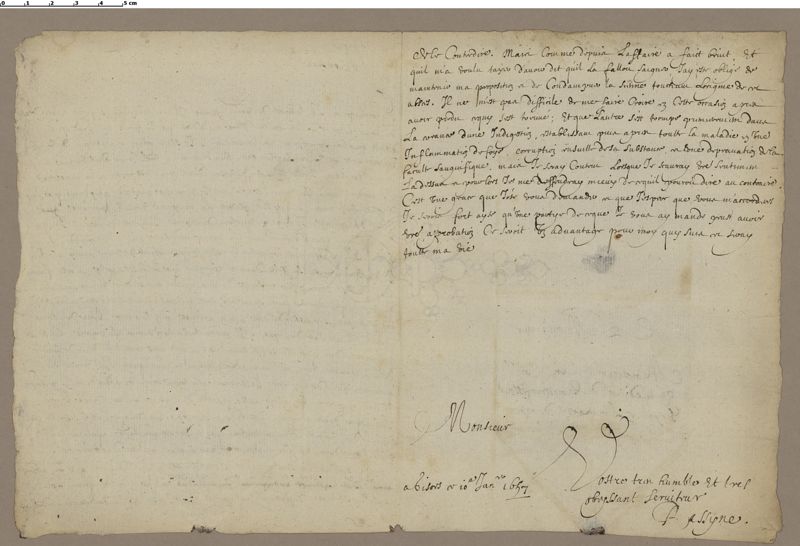 0 1 2 3 4 5 cm
de le Contredire. Mais Comme depuis Laffaire a faict bruit, Et
quil ma voulu taxer davoir dit quil la falloit saigner Jay este obligé de
maintenir ma proposition & de Condamner la sienne
abus. Il ne mest pas difficile de me faire Croire en Cette occasion apres
avoir perdu ce qui sest trouvé; Et que Lautre sest trompé
La dune Indigestion, establissant puis apres toutte la maladie en Une
Inflammation de foye, corruption ensuitte de sa substance, et Une depravation de la
faculté sanguifique, mais Je seray Content Lorsque Je sauray Vre sentiment
Ladessus et pour lors Je me deffendray mieux de ce quil pouroit dire au contraire.
C'est Une grace que Jose vous demander et que Jespere que vous maccorderez
Je serois fort ayse quune partye de ce que Je vous ay mandé peut avoir
vre approbation Ce seroit Un advantage pour moy qui suis et seray
toutte ma vie
Monsieur
a Gisors ce 10e Janvr 1657
Vostre tres humble Et tres
obeyssant serviteur
P. Assyne.